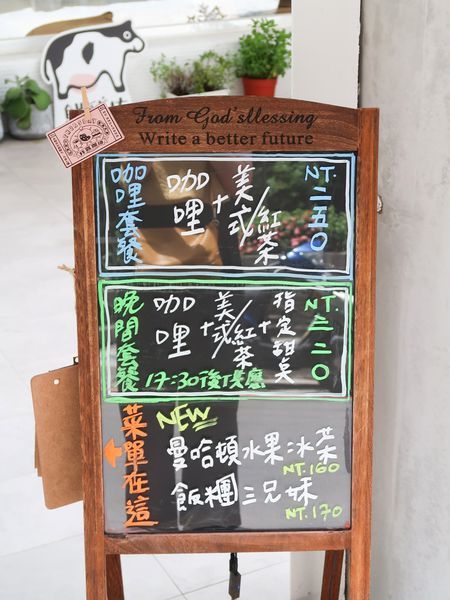 From God'sllessing
Write a better future
咖哩套餐
咖哩+美式/紅茶
NT.二五〇
晚間套餐
咖哩+美式/紅茶+指定甜点
NT.三二〇
17:30後供應
菜單在這
NEW
曼哈頓水果冰茶
NT.160
飯糰三兄妹
NT.170